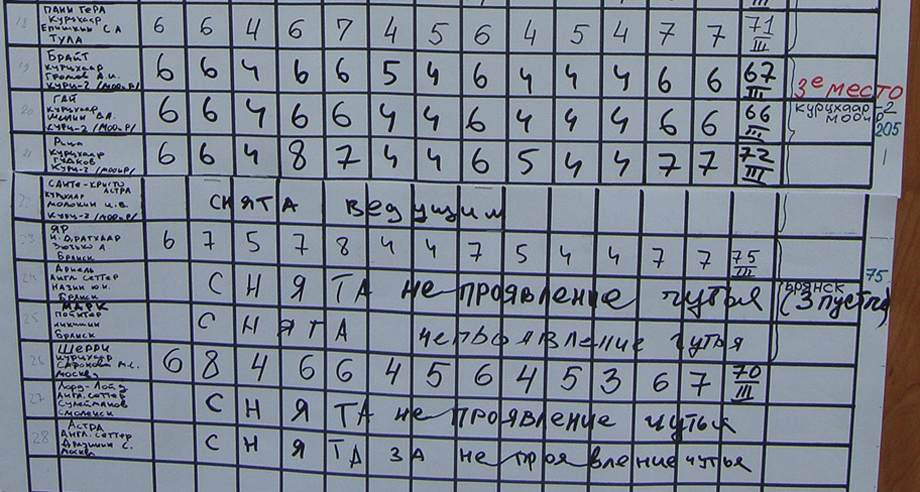 18 ПАНИ ГЕРА
КУРЦХААР
ЕПИШКИН С А
ТУЛА
6 6 4 6 7 4 5 6 4 5 4 7 7 71 III
19 БРАЙТ
КУРЦХААР
ГРОМОВ А.И.
КУРЦ-2 /МООиР/
6 6 4 6 6 5 4 6 4 4 4 6 6 67 III
3е МЕСТО
20 ГАЙ
КУРЦХААР
КУРЦ-2 /МООиР/
6 6 4 6 6 4 4 6 4 4 4 6 6 66 III
КУРЦХААР-2
МООиР
205
21 Рица
КУРЦХААР
ГУДКОВ
КУРЦ-2 /МООиР/
6 6 4 8 7 4 4 6 5 4 4 7 7 72 III
22 САНТЕ-КРИСТО
АСТРА
КУРЦХААР
МОЛОКИН И.В.
КУРЦ-2 /МООиР/
СНЯТА ВЕДУЩИМ
23 ЯР
Н. ДРАТХААР
ЗЮЗЬКО А.
Брянск
6 7 5 7 8 4 4 7 5 4 4 7 7 75 III
75
24 Ариель
Англ. СЕТТЕР
НАЗИН Ю.Н.
Брянск
СНЯТА НЕ ПРОЯВЛЕНИЕ ЧУТЬЯ
БРЯНСК
(3 пусты)
25 МАРК
ПОЙНТЕР
НИКИШИН
Брянск
СНЯТА НЕПРОЯВЛЕНИЕ ЧУТЬЯ
26 ШЕРРИ
КУРЦХААР
САФОНОВА М.С.
МОСКВА
6 8 4 6 6 4 5 6 4 5 3 6 7 70 III
27 Лорд-Лойд
Англ. СЕТТЕР
СУЛЕЙМАНОВ
СМОЛЕНСК
СНЯТА НЕ ПРОЯВЛЕНИЕ ЧУТЬЯ
28 АСТРА
Англ. СЕТТЕР
МОСКВА
СНЯТА ЗА НЕПРОЯВЛЕНИЕ ЧУТЬЯ